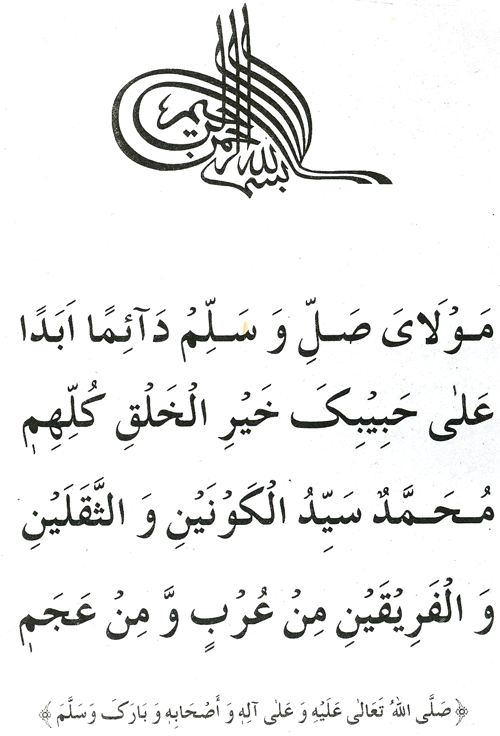 بسم الله الرحمن الرحيم
مَوْلَایَ صَلِّ وَ سَلِّمْ دَآئِمًا اَبَدًا
عَلٰی حَبِیْبِکَ خَیْرِ الْخَلْقِ کُلِّهِمٖ
مُحَمَّدٌ سَیِّدُ الْکَوْنَیْنِ وَ الثَّقَلَیْنِ
وَ الْفَرِیْقَیْنِ مِنْ عُرْبٍ وَّ مِنْ عَجَمٖ
﴿صَلَّی اللهُ تَعَالٰی عَلَیْهِ وَ عَلٰی آلِهٖ وَ أَصْحَابِهٖ وَ بَارَکَ وَسَلَّمَ﴾